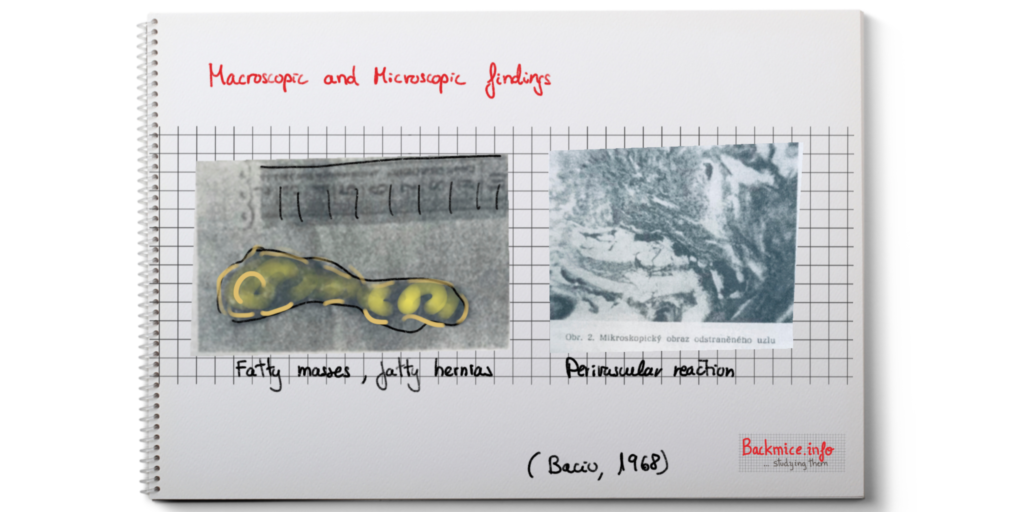 Macroscopic and Microscopic findings
Obr. 2. Mikroskopický obraz odstraněného uzlu
Fatty masses, fatty hernias
Perivascular reaction
(Baciu, 1968)
Backmice.info
... studying them